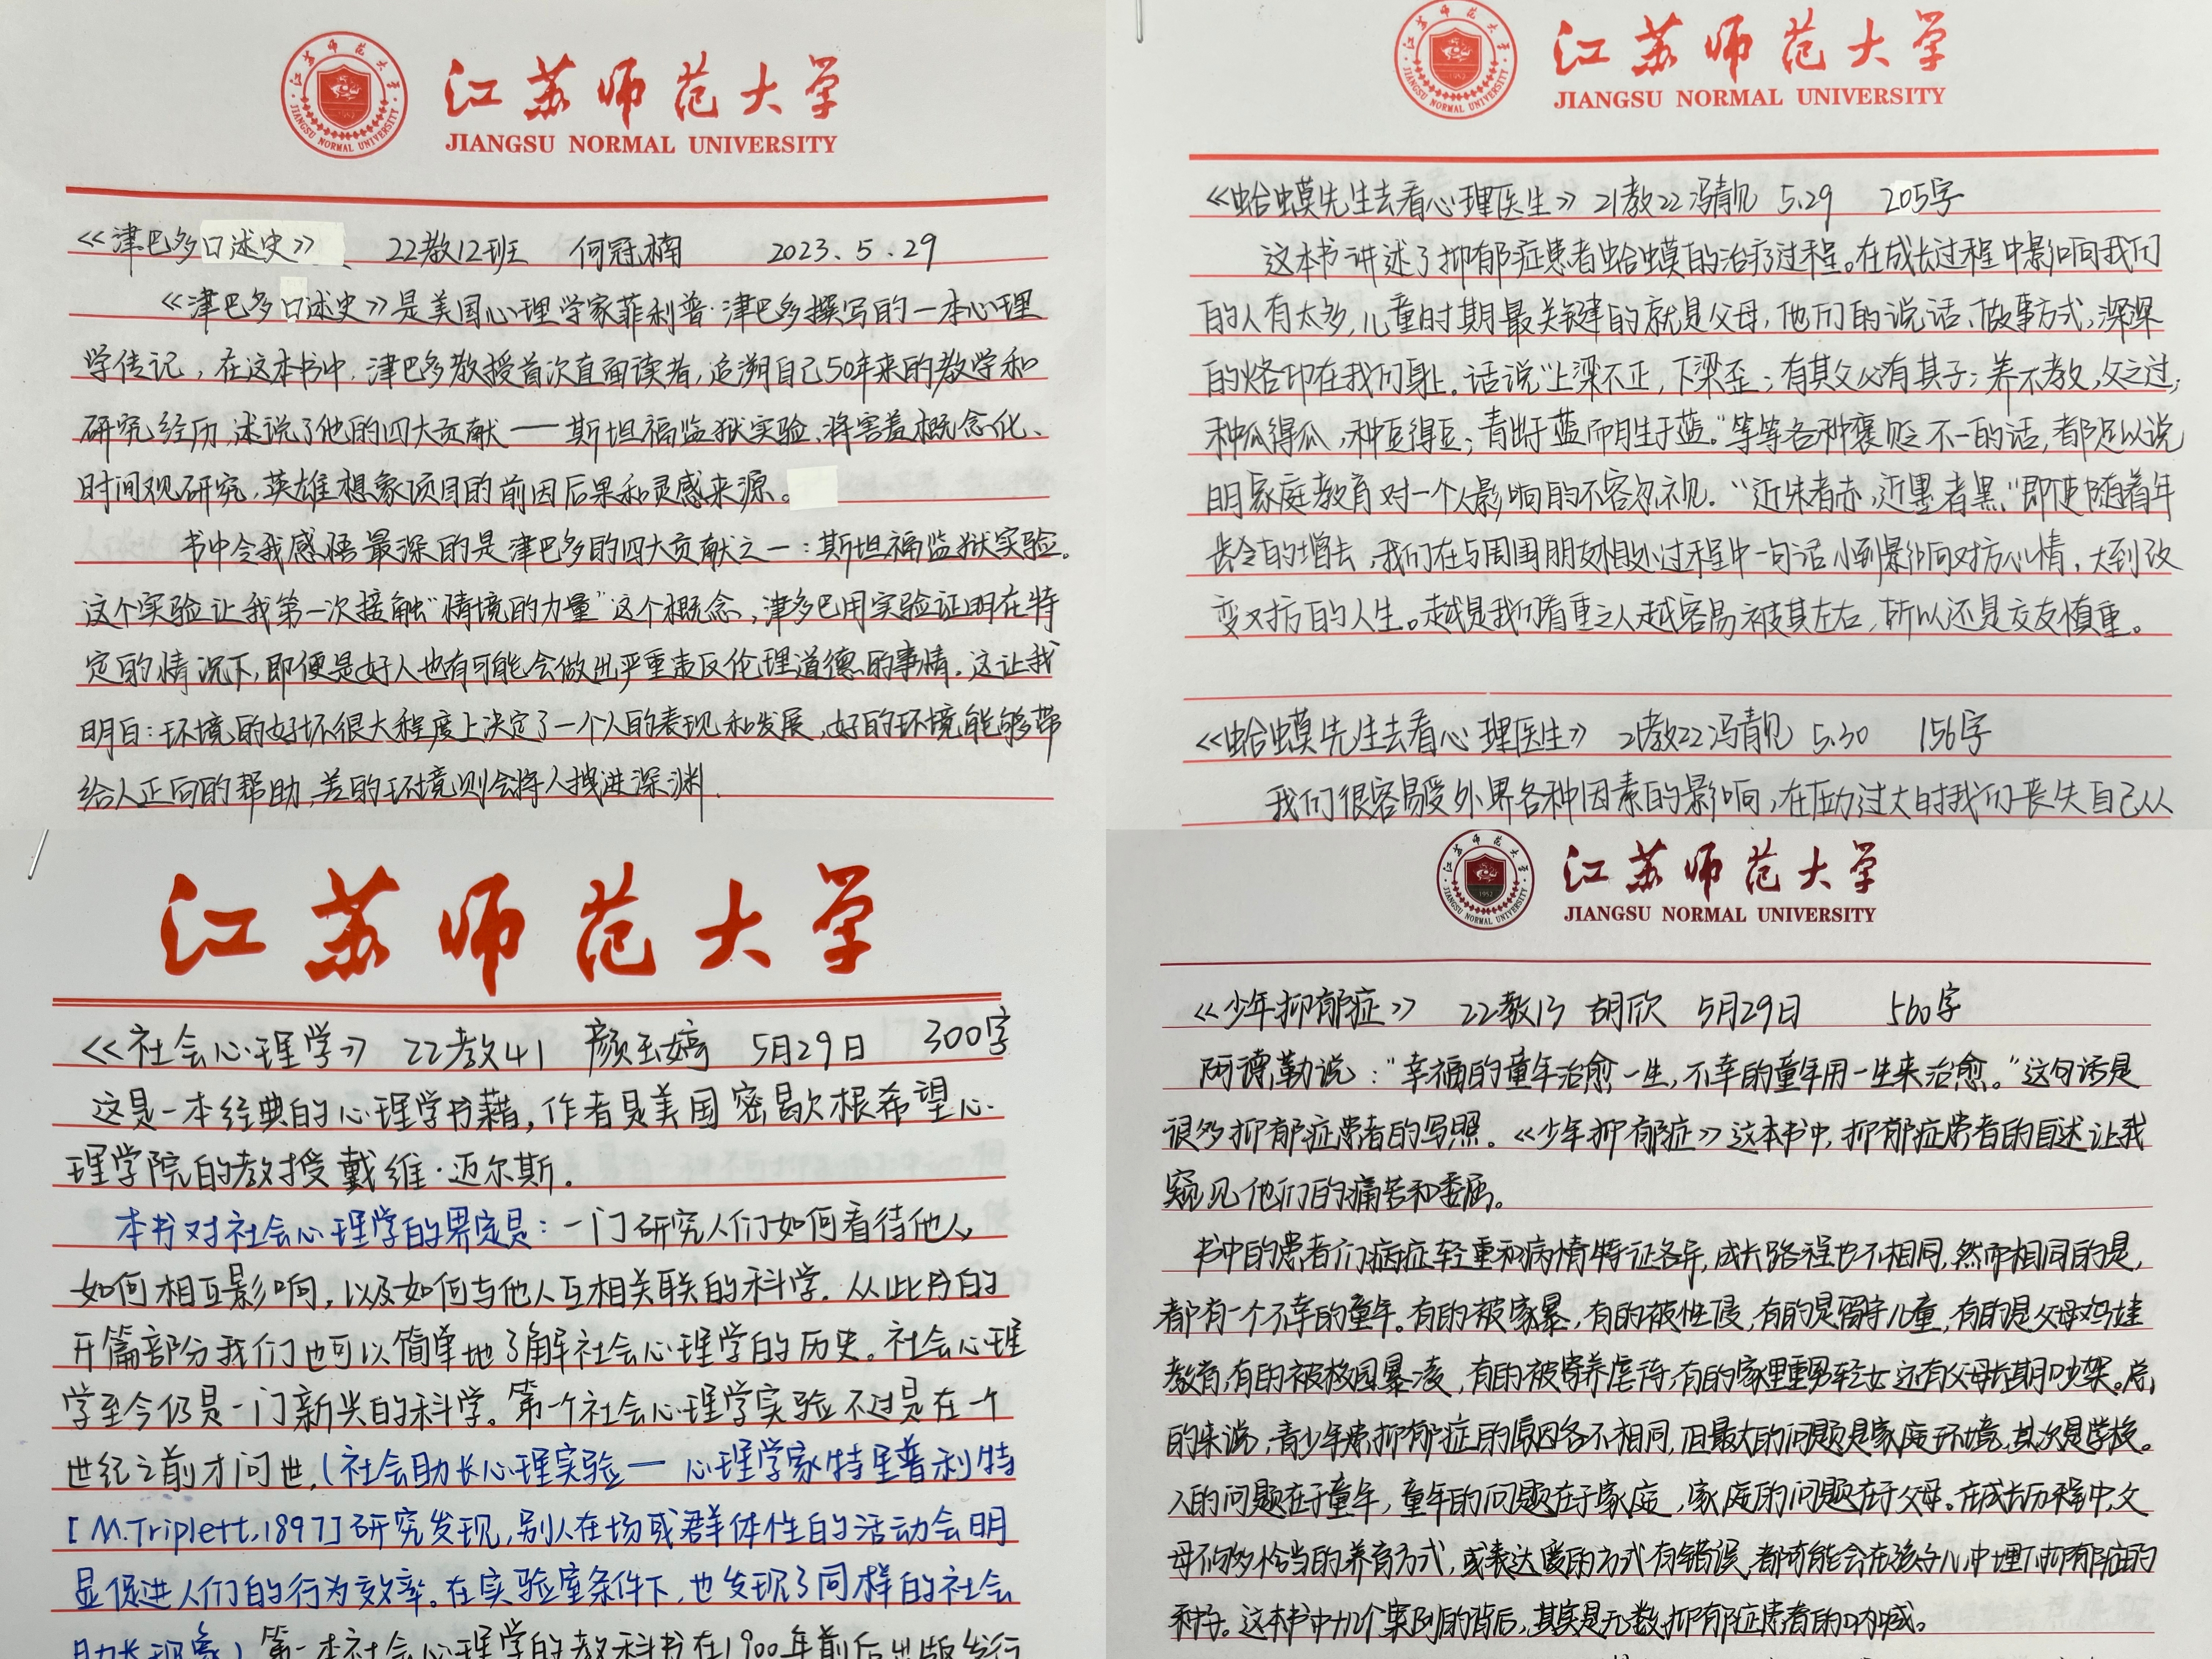 江苏师范大学
JIANGSU NORMAL UNIVERSITY
《津巴多口述史》 22教12班 何冠楠 2023.5.29
《津巴多口述史》是美国心理学家菲利普·津巴多撰写的一本心理
学传记，在这本书中，津巴多教授首次直面读者，追溯自己50年来的教学和
研究经历，述说了他的四大贡献——斯坦福监狱实验、将害羞概念化、
时间观研究，英雄想象项目的前因后果和灵感来源。
书中令我感悟最深的是津巴多的四大贡献之一：斯坦福监狱实验。
这个实验让我第一次接触“情境的力量”这个概念，津多巴用实验证明在特
定的情况下，即便是好人也有可能会做出严重违反伦理道德的事情。这让我
明白：环境的好坏很大程度上决定了一个人的表现和发展，好的环境能够带
给人正向的帮助，差的环境则会将人拽进深渊.
江苏师范大学
JIANGSU NORMAL UNIVERSITY
《蛤蟆先生去看心理医生》 21教22冯靓 5.29 205字
这本书讲述了抑郁症患者蛤蟆的治疗过程。在成长过程中影响我们
的人有太多，儿童时期最关键的就是父母，他们的说话、做事方式，深深
的烙印在我们身上。话说“上梁不正，下梁歪；有其父必有其子；养不教，父之过；
种瓜得瓜，种豆得豆；青出于蓝而胜于蓝。”等等各种褒贬不一的话，都足以说
明家庭教育对一个人影响的不容忽视。“近朱者赤，近墨者黑”即使随着年
龄的增长，我们在与周围朋友相处过程中一句话小到影响对方心情，大到改
变对方的人生。越是我们看重之人越容易被其左右，所以还是交友慎重。
《蛤蟆先生去看心理医生》 21教22冯靓 5.30 156字
我们很容易受外界各种因素的影响，在压力过大时我们丧失自己从
江苏师范大学
《社会心理学》 22教41 颜玉婷 5月29日 300字
这是一本经典的心理学书籍，作者是美国密歇根希望心
理学院的教授戴维·迈尔斯.
本书对社会心理学的界定是：一门研究人们如何看待他人，
如何相互影响，以及如何与他人互相关联的科学。从此书的
开篇部分我们也可以简单地了解社会心理学的历史。社会心理
学至今仍是一门新兴的科学。第一个社会心理学实验不过是在一个
世纪之前才问世，（社会助长心理实验——心理学家特里普利特
[M.Triplett,1897]研究发现，别人在场或群体性的活动会明
显促进人们的行为效率。在实验室条件下，也发现了同样的社会
助长现象）第一本社会心理学的教科书在1900年前后出版发行
江苏师范大学
JIANGSU NORMAL UNIVERSITY
《少年抑郁症》 22教13 胡欣 5月29日 560字
阿德勒说：“幸福的童年治愈一生，不幸的童年用一生来治愈。”这句话是
很多抑郁症患者的写照。《少年抑郁症》这本书中，抑郁症患者的自述让我
窥见他们的痛苦和委屈。
书中的患者们病症轻重和病情特征各异，成长路程也不相同，然而相同的是，
都有一个不幸的童年。有的被家暴，有的被性侵，有的是留守儿童，有的是父母鸡娃
教育，有的被校园暴凌，有的被寄养虐待，有的家里重男轻女还有父母长期吵架。总
的来说，青少年患抑郁症的原因各不相同，但最大的问题是家庭环境，其次是学校。
人的问题在于童年，童年的问题在于家庭，家庭的问题在于父母。在成长历程中，父
母不够恰当的养育方式，或表达爱的方式有错误，都可能会在孩子心中埋下抑郁症的
种子。这本书中十几个案例的背后，其实是无数抑郁症患者的呐喊。